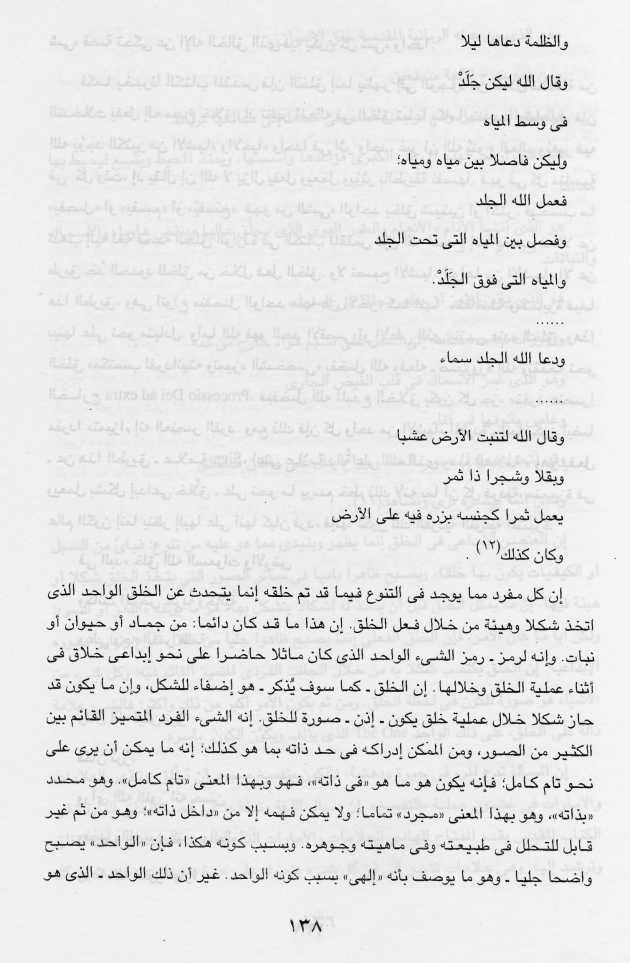 والظلمة دعاها ليلا
وقال الله ليكن جَلَدْ
فى وسط المياه
وليكن فاصلا بين مياه ومياه؛
فعمل الله الجلد
وفصل بين المياه التى تحت الجلد
والمياه التى فوق الجَلَدْ.
......
ودعا الله الجلد سماء
......
وقال الله لتنبت الأرض عشبا
وبقلا وشجرا ذا ثمر
يعمل ثمرا كجنسه بزره فيه على الأرض
وكان كذلك(١٢) .
إن كل مفرد مما يوجد فى التنوع فيما قد تم خلقه إنما يتحدث عن الخلق الواحد الذى
اتخذ شكلا وهيئة من خلال فعل الخلق. إن هذا ما قد كان دائما: من جماد أو حيوان أو
نبات. وإنه لرمز ـ رمز الشىء الواحد الذى كان ماثلا حاضرا على نحو إبداعى خلاق فى
أثناء عملية الخلق وخلالها. إن الخلق ـ كما سوف يُذكر ـ هو إضفاء للشكل، وإن ما يكون قد
حاز شكلا خلال عملية خلق يكون ـ إذن ـ صورة للخلق. إنه الشىء الفرد المتميز القائم بين
الكثير من الصور، ومن الممكن إدراكه فى حد ذاته بما هو كذلك؛ إنه ما يمكن أن يرى على
نحو تام كامل؛ فإنه يكون هو ما هو «فى ذاته»، فهو وبهذا المعنى «تام كامل». وهو محدد
«بذاته»، وهو بهذا المعنى «مجرد» تماما؛ ولا يمكن فهمه إلا من «داخل ذاته»؛ وهو من ثم غير
قابل للتحلل فى طبيعته وفى ماهيته وجوهره. وبسبب كونه هكذا، فإن «الواحد» يصبح
واضحا جليا ـ وهو ما يوصف بأنه «إلهى» بسبب كونه الواحد. غير أن ذلك الواحد ـ الذى هو
١٣٨